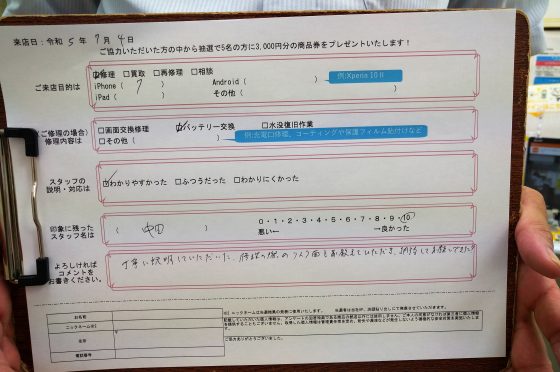 来店日：令和 5 年 7 月 4 日
ご協力いただいた方の中から抽選で5名の方に3,000円分の商品券をプレゼントいたします！
ご来店目的は
☑修理 □買取 □再修理 □相談
iPhone ( 7 ) Android ( ) 例:Xperia 10Ⅱ
iPad ( ) その他 ( )
(ご修理の場合)
修理内容は
□画面交換修理 ☑バッテリー交換 □水没復旧作業
□その他 ( ) 例:充電口修理、コーティングや保護フィルム貼付けなど
スタッフの
説明・対応は
☑わかりやすかった □ふつうだった □わかりにくかった
印象に残った
スタッフ名は
( 中田 )
0・1・2・3・4・5・6・7・8・9・10
悪い← →良かった
よろしければ
コメントを
お書きください。
丁寧に説明していただいた、修理の際の リスク面もお教えていただき、納得してお願いできた。
お名前
ニックネーム※1
住所
〒
電話番号
ご協力ありがとうございました。